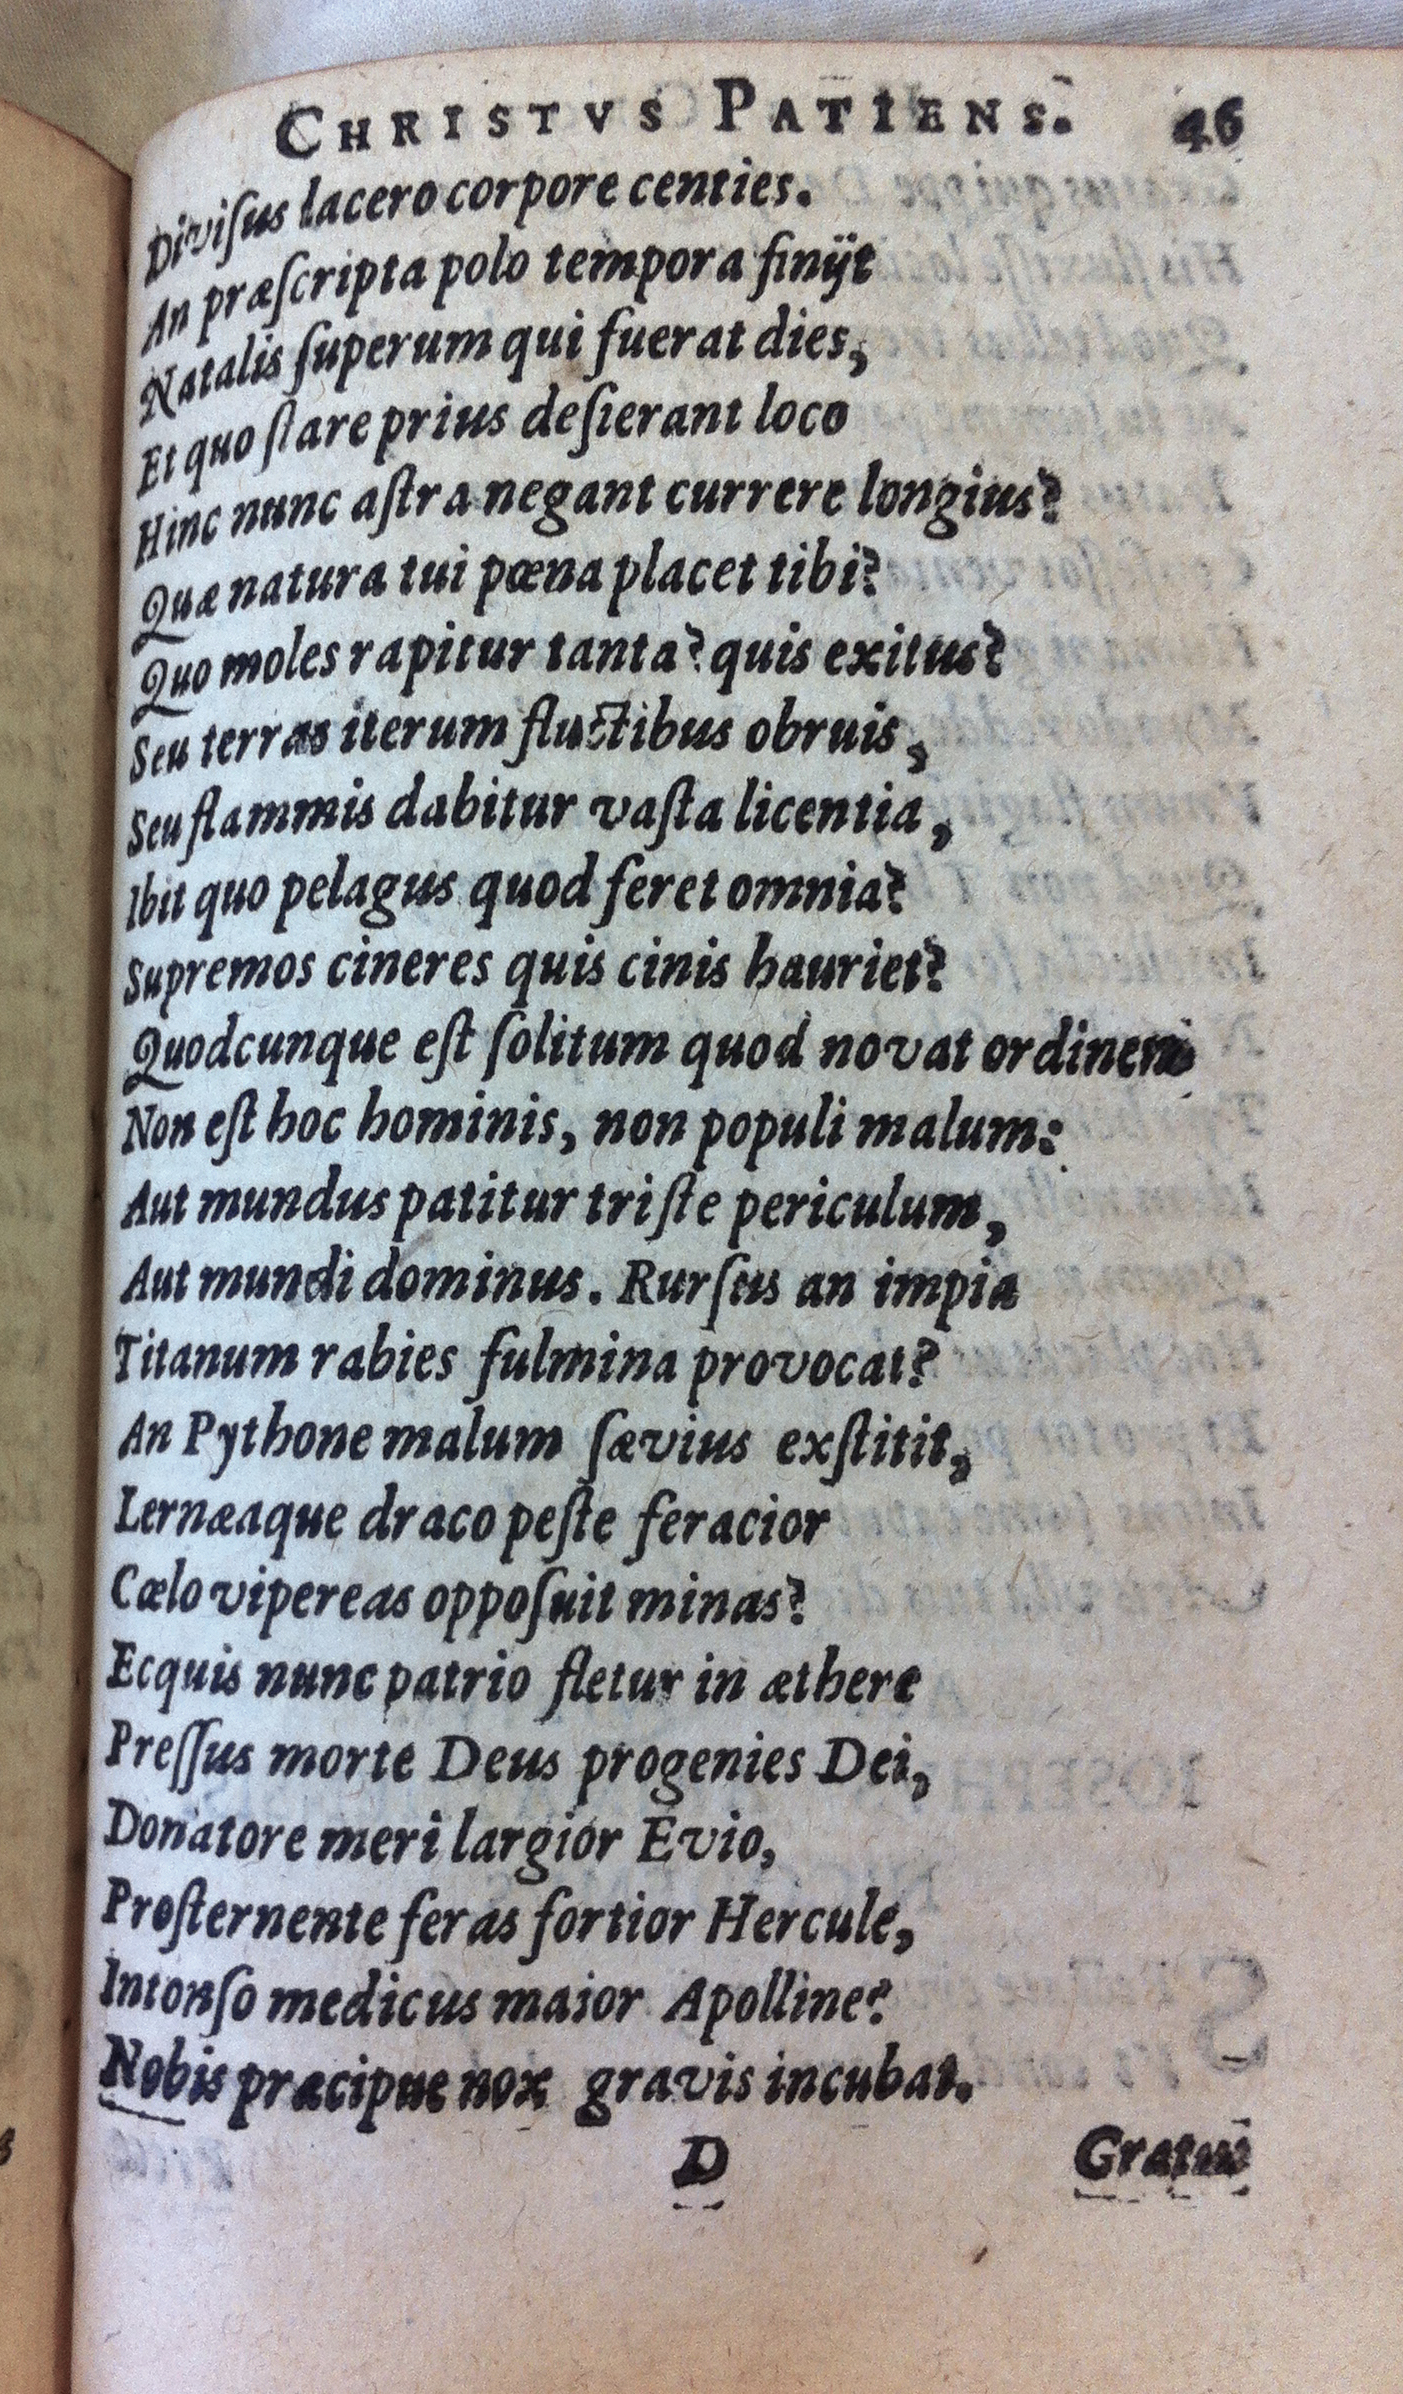 CHRISTVS PATIENS. 46
Diviſus lacero corpore centies.
An præſcripta polo tempora finijt
Natalis ſuperum qui fuerat dies,
Et quo ſtare prius deſierant loco
Hinc nunc aſtra negant currere longius?
Quæ natura tui pœna placet tibi?
Quo moles rapitur tanta? quis exitus?
Seu terras iterum fluctibus obruis,
Seu flammis dabitur vaſta licentia,
Ibit quo pelagus quod feret omnia?
Supremos cineres quis cinis hauriet?
Quodcunque eſt ſolitum quod novat ordinem
Non eſt hoc hominis, non populi malum:
Aut mundus patitur triſte periculum,
Aut mundi dominus. Rurſus an impia
Titanum rabies fulmina provocat?
An Pythone malum ſævius exſtitit,
Lernæaque draco peſte feracior
Cœlo vipereas oppoſuit minas?
Ecquis nunc patrio fletur in æthere
Preſſus morte Deus progenies Dei,
Donatore meri largior Evio,
Proſternente feras fortior Hercule,
Intonſo medicus maior Apolline?
Nobis præcipue nox gravis incubat.
D Gratus